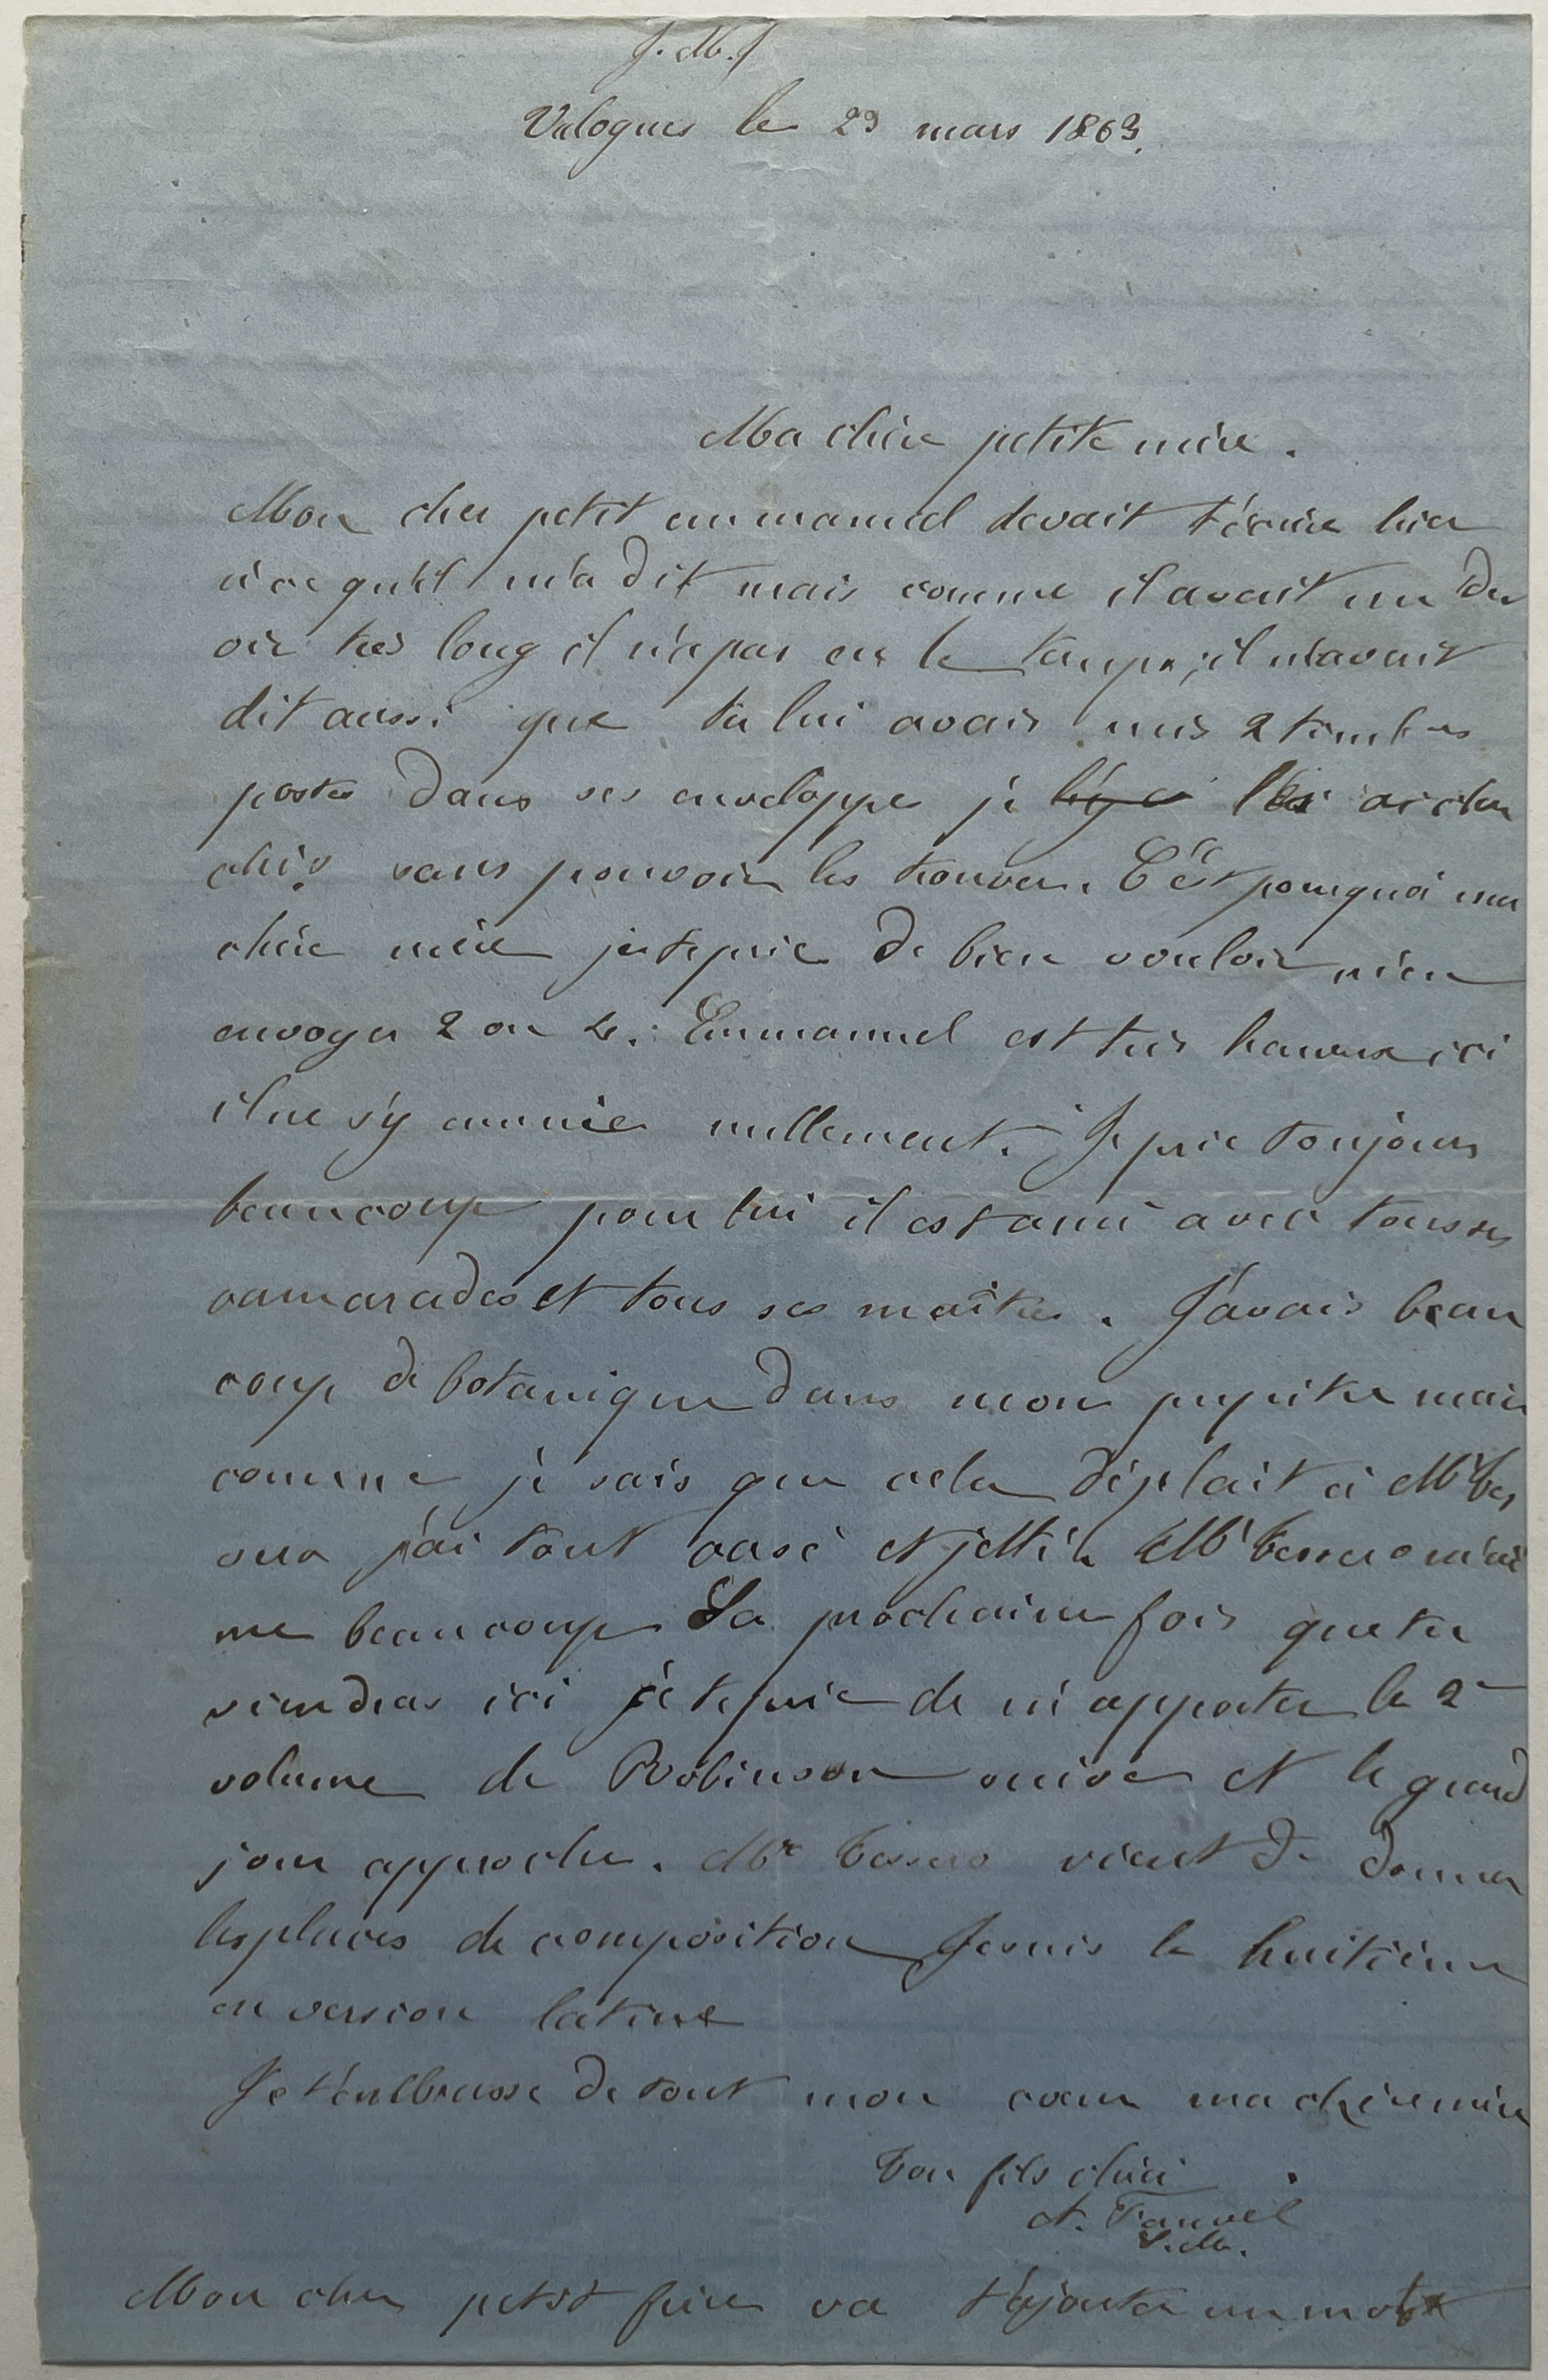 J. M. J
Valognes le 29 mars 1863.
Ma chère petite mère.
Mon cher petit emmanuel devait t'écrire hier
à ce qu'il m'a dit mais comme il avait un dev
oir très long il n'a pas eu le temps, il m'avait
dit aussi que tu lui avais mis 2 timbres
postes dans ses enveloppes je les ai cher
chés sans pouvoir les trouver. C'est pourquoi ma
chère mère je te prie de bien vouloir m'en
envoyer 2 ou 4. Emmanuel est très heureux ici
il ne s'y ennuie nullement. Je prie toujours
beaucoup pour lui il est ami avec tous ses
camarades et tous ses maîtres. J'avais beau
coup de botanique dans mon pupitre mais
comme je sais que cela déplait à Mr
j'ai tout cassé et jetté. Mr m'ai
me beaucoup La prochaine fois que tu
viendras ici je te prie de m'apporter le 2e
volume de Robinson suisse et le grand
jour approche. Mr vient de donner
les places de composition Je suis le huitième
en version latine
Je t'embrasse de tout mon cœur ma chère mère
Ton fils chéri.
A. Fauvel
Mon cher petit frère va t'ajouter un mot